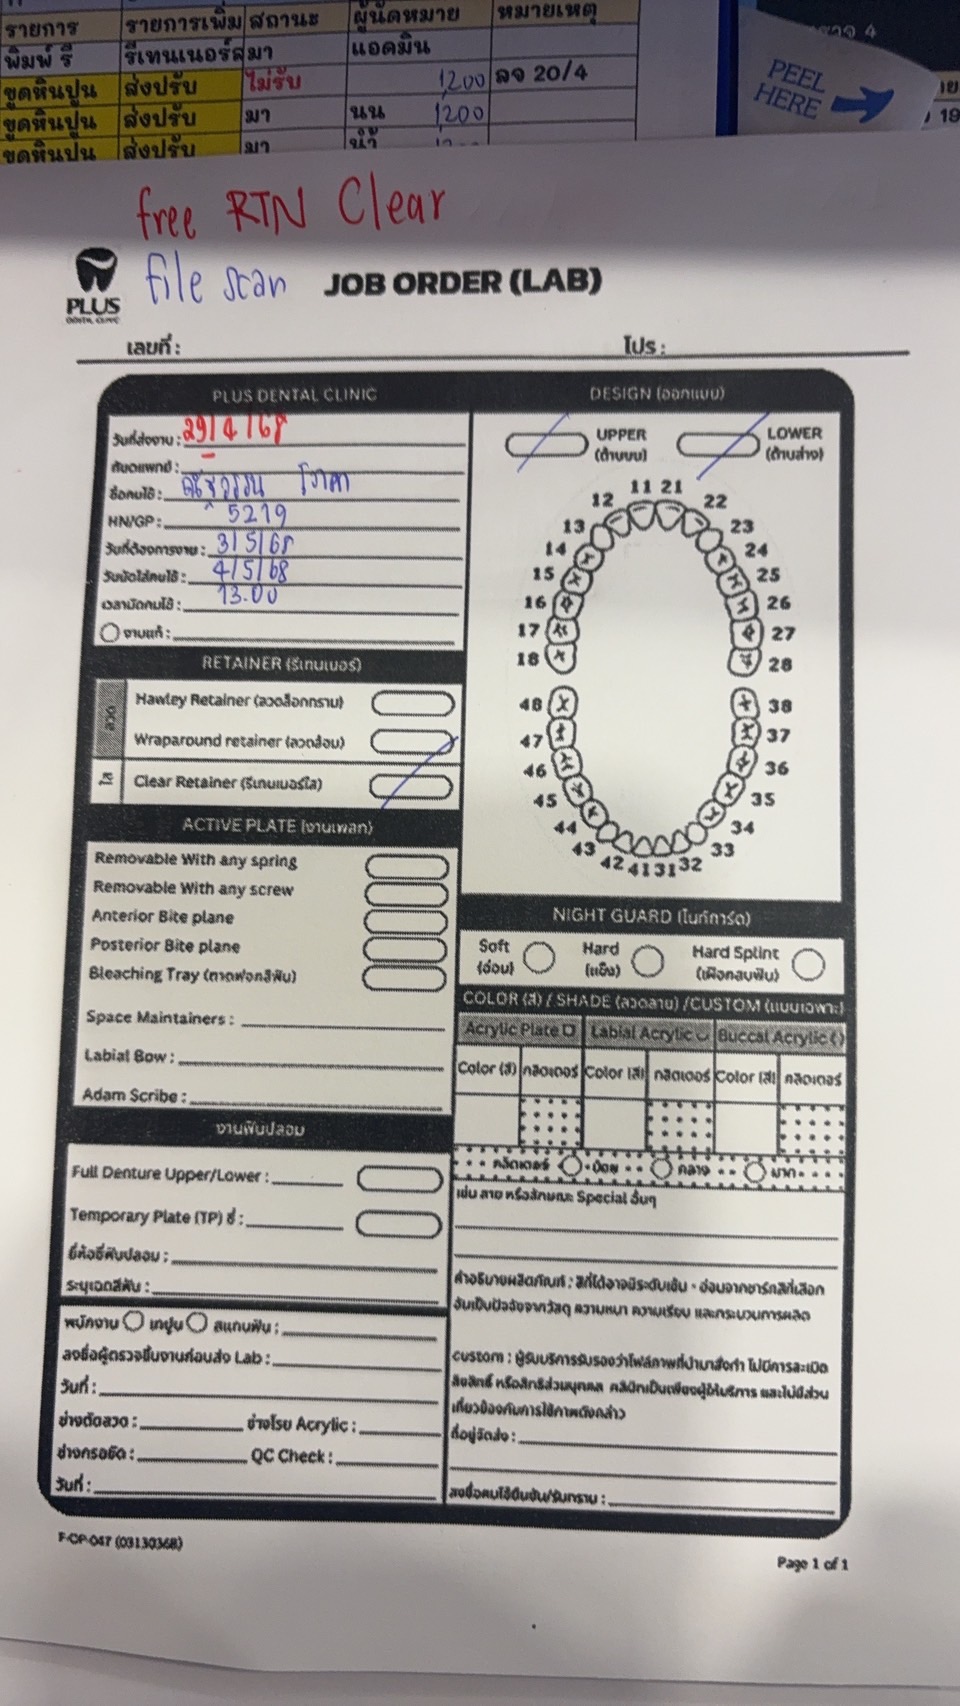 รายการ รายการเพิ่ม สถานะ ผู้นัดหมาย หมายเหตุ
พิมพ์ รี รีเทนเนอร์ส มา แอดมิน
ขูดหินปูน ส่งปรับ ไม่รับ 1,200 ลจ 20/4
ขูดหินปูน ส่งปรับ มา นน 1,200
ขูดหินปูน ส่งปรับ มา น้ำ
PEEL
HERE
19
free RTN Clear
file scan
JOB ORDER (LAB)
PLUS
DENTAL CLINIC
เลขที่ : โปร :
PLUS DENTAL CLINIC
วันที่ส่งงาน : 29/4/68
ทันตแพทย์ :
ชื่อคนไข้ :
HN/GP : 5219
วันที่ต้องการงาน : 3/5/68
วันนัดใส่คนไข้ : 4/5/68
เวลานัดคนไข้ : 13.00
งานแก้ :
RETAINER (รีเทนเนอร์)
ลวด
Hawley Retainer (ลวดล็อกกราม)
Wraparound retainer (ลวดอ้อม)
ใส
Clear Retainer (รีเทนเนอร์ใส)
ACTIVE PLATE (งานเพลท)
Removable With any spring
Removable With any screw
Anterior Bite plane
Posterior Bite plane
Bleaching Tray (ถาดฟอกสีฟัน)
Space Maintainers :
Labial Bow :
Adam Scribe :
งานฟันปลอม
Full Denture Upper/Lower :
Temporary Plate (TP) ซี่ :
ยี่ห้อซี่ฟันปลอม :
ระบุเฉดสีฟัน :
พนักงาน เทปูน สแกนฟัน :
ลงชื่อผู้ตรวจชิ้นงานก่อนส่ง Lab :
วันที่ :
ช่างดัดลวด : ช่างโรย Acrylic :
ช่างกรอขัด : QC Check :
วันที่ :
DESIGN (ออกแบบ)
UPPER
(ด้านบน)
LOWER
(ด้านล่าง)
11 21
12 22
13 23
14 24
15 25
16 26
17 27
18 28
48 38
47 37
46 36
45 35
44 34
43 33
42 41 31 32
NIGHT GUARD (ไนท์การ์ด)
Soft
(อ่อน)
Hard
(แข็ง)
Hard Splint
(เฝือกสบฟัน)
COLOR (สี) / SHADE (ลวดลาย) /CUSTOM (แบบเฉพาะ)
Acrylic Plate Labial Acrylic Buccal Acrylic
Color (สี) กลิตเตอร์ Color (สี) กลิตเตอร์ Color (สี) กลิตเตอร์
กลิตเตอร์ น้อย กลาง มาก
เช่น ลาย หรือลักษณะ Special อื่นๆ
คำอธิบายผลิตภัณฑ์ : สีที่ได้อาจมีระดับเข้ม - อ่อนจากชาร์กสีที่เลือก
อันเป็นปัจจัยจากวัสดุ ความหนา ความเรียบ และกระบวนการผลิต
custom : ผู้รับบริการรับรองว่าไฟล์ภาพที่นำมาสั่งทำ ไม่มีการละเมิด
ลิขสิทธิ์ หรือสิทธิส่วนบุคคล คลินิกเป็นเพียงผู้ให้บริการ และไม่มีส่วน
เกี่ยวข้องกับการใช้ภาพดังกล่าว
ที่อยู่จัดส่ง :
ลงชื่อคนไข้ยืนยัน/รับทราบ :
F-OP-047 (03130368)
Page 1 of 1